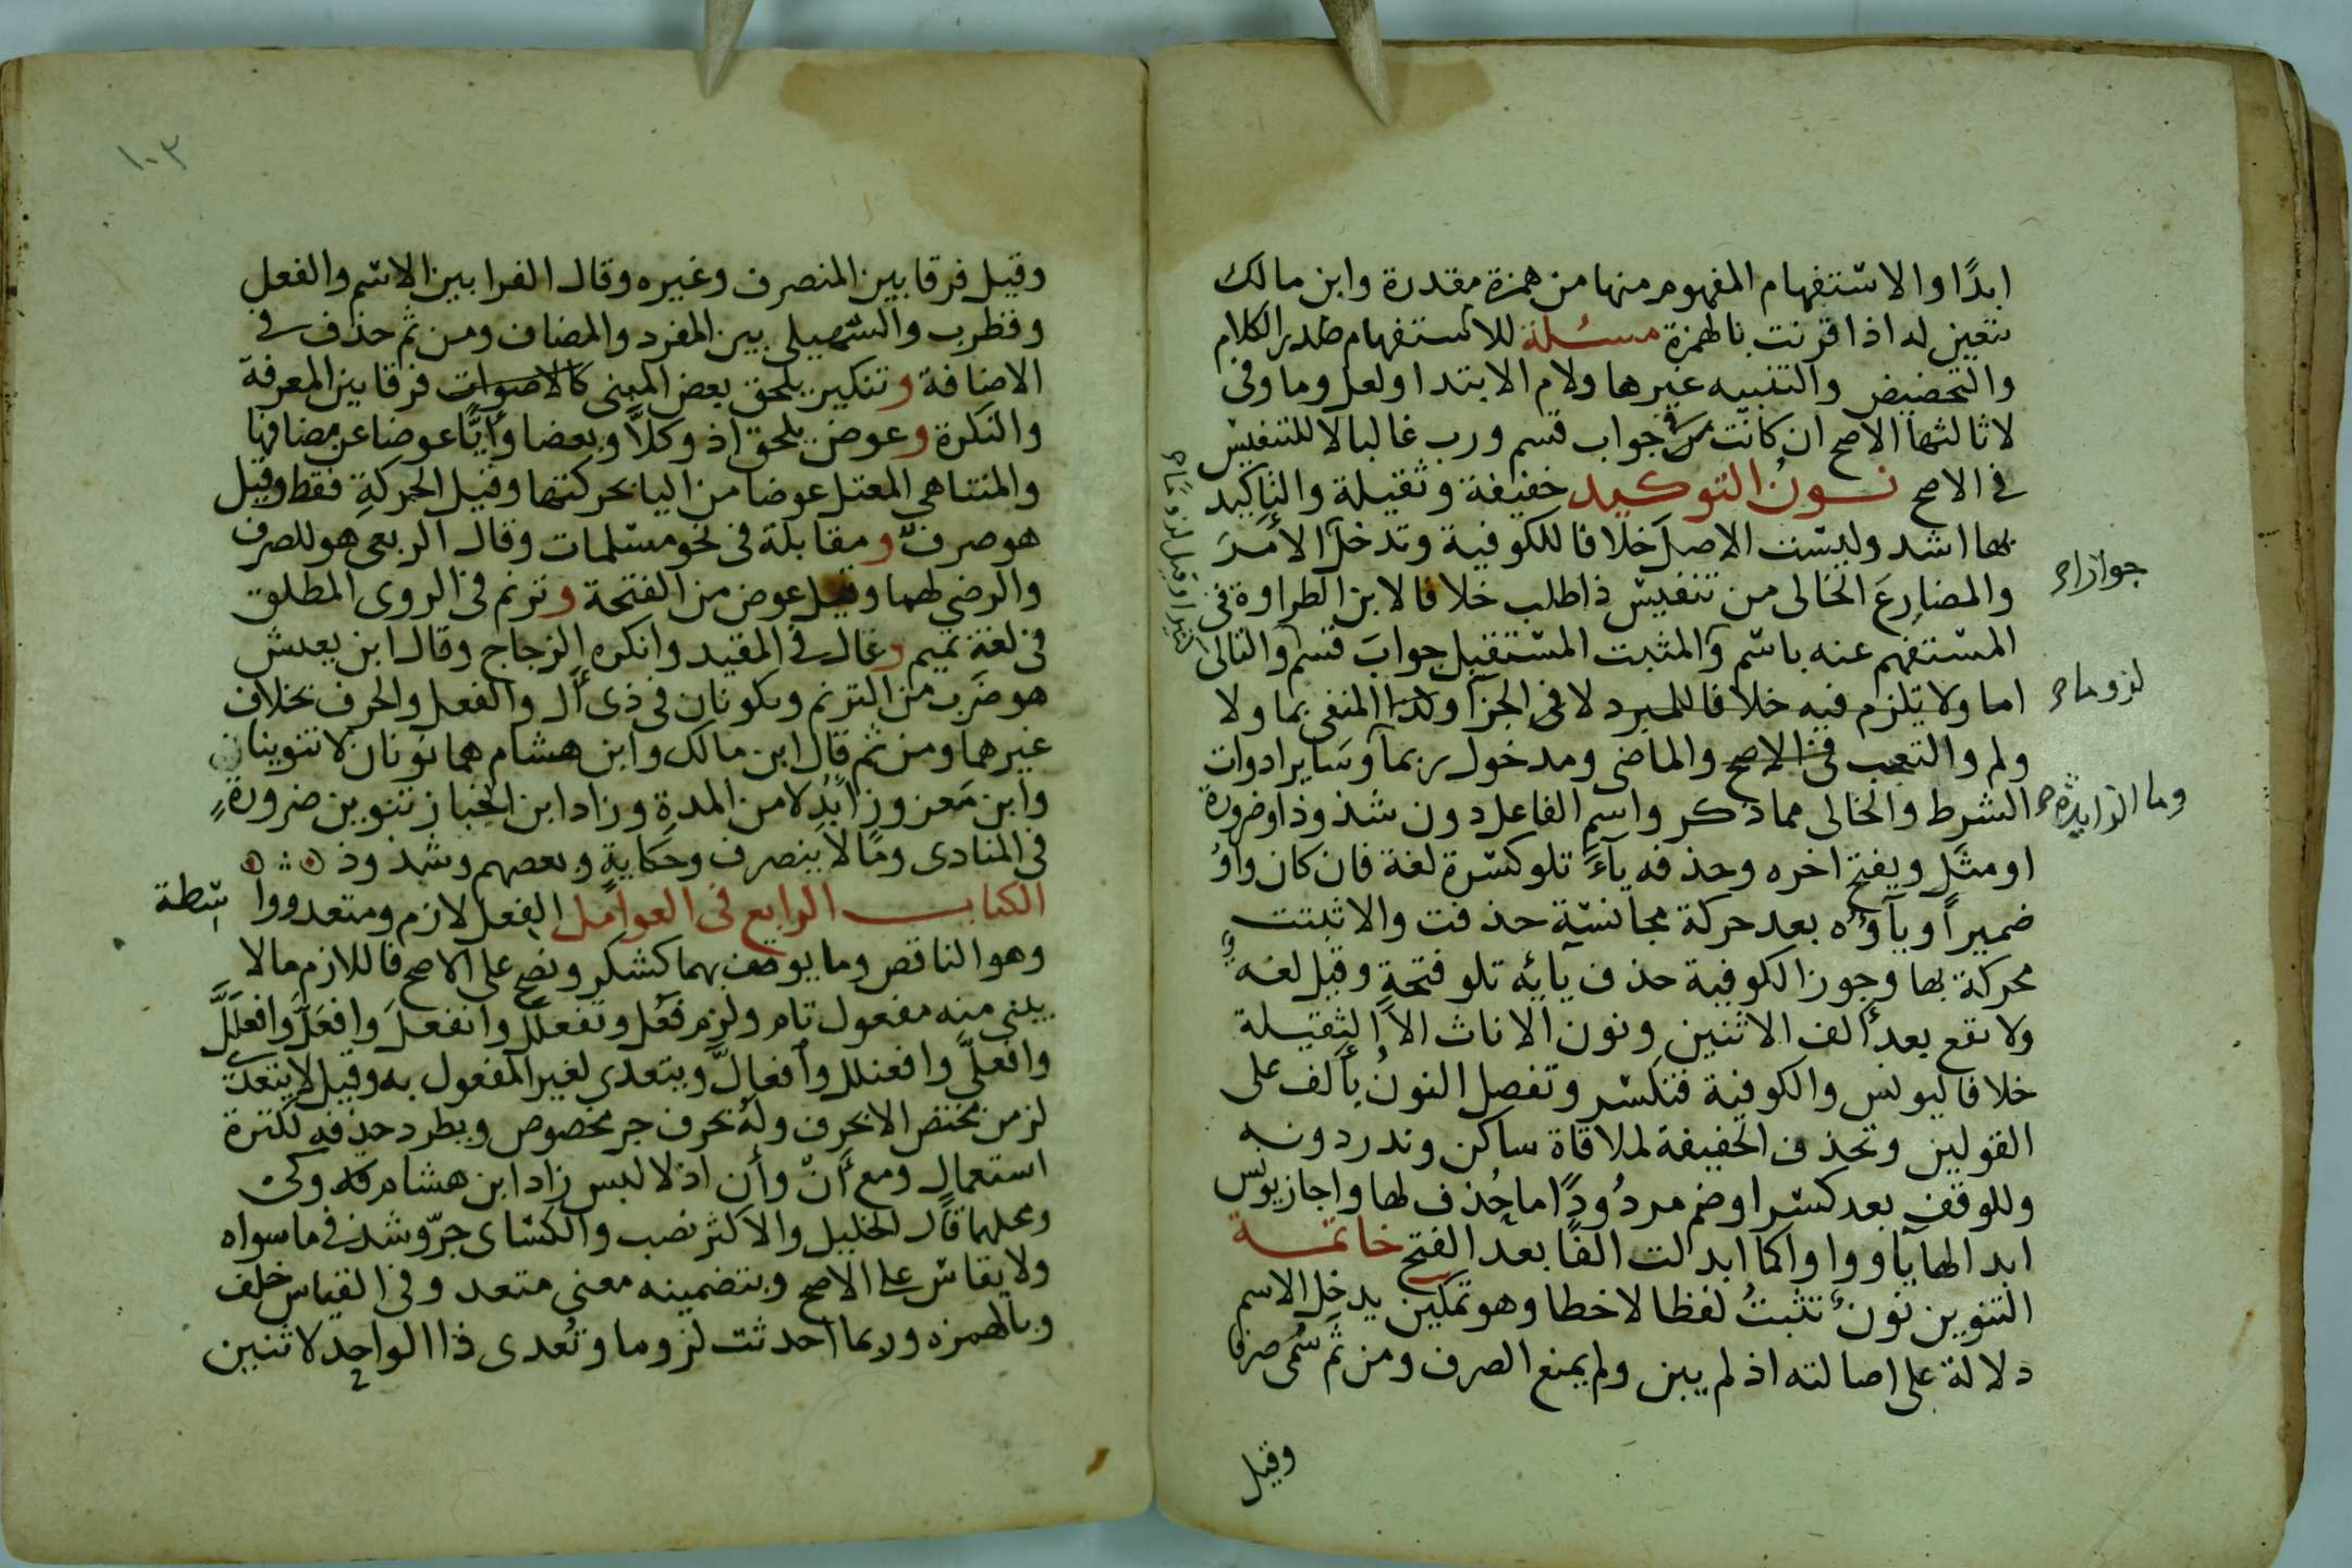 ابدًا والاستفهام المفهوم منها من همزة مقدرة وابن مالك
تتعين له اذا قرنت بالهمزة مسئلة للاستفهام صدر الكلام
والتحضيض والتنبيه غيرها ولام الابتدا ولعل وما وفى
لا ثالثها الاصح ان كانت فى جواب قسم ورب غالبا لا للتنفيس
فى الاصح نون التوكيد خفيفة وثقيلة والتاكيد
بها اشد وليست الاصل خلافا للكوفية وتدخل الامر
جوازا صح
والمضارع الخالى من تنفيس ذا طلب خلافا لابن الطراوة فى
المستفهم عنه باسم والمثبت المستقبل جواب قسم والتالى
كثيرا وقيل لزوما صح
لزوما صح
اما ولا يلزم فيه خلافا للمبرد لا فى الجزا ولذا المنفى بما ولا
ولم والتعجب فى الاصح والماضى ومدخول ربما وساير ادوات
وما الزايدة صح
الشرط والخالى مما ذكر واسم الفاعل دون شذوذ او ضرورة
او مثل ويفتح اخره وحذفه ياءً تلو كسرة لغة فان كان واوُ
ضميرا وياؤه بعد حركة مجانسة حذفت والا ثبتت
محركة بها وجوز الكوفية حذف يائه تلو فتحة وقيل لغة
ولا تقع بعد الف الاثنين ونون الاناث الا الثقيلة
خلافا ليونس والكوفية فتكسر وتفصل النونُ بألف على
القولين وتحذف الخفيفة لملاقاة ساكن وندر دونه
وللوقف بعد كسر او ضم مردُودًا ما حُذف لها واجاز يونس
ابدالها يا وواوا كما ابدلت الفًا بعد الفتح خاتمة
التنوين نون تثبتُ لفظا لا خطا وهو تمكين يدخل الاسم
دلالة على اصالته اذ لم يبن ولم يمنع الصرف ومن ثَم سُمى صرفا
وقيل
١٠٣
وقيل فرقا بين المنصرف وغيره وقال الفرا بين الاسم والفعل
وقطرب والسهيلى بين المفرد والمضاف ومن ثم حذف فى
الاضافة وتنكير يلحق بعض المبنى كالاصوات فرقا بين المعرفة
والنكرة وعوض يلحق اذ وكلاًّ وبعضا وأيًّا عوضا عن مضافها
والمتناهى المعتل عوضا من اليا بحركتها وقيل الحركة فقط وقيل
هو صرف ومقابلة فى نحو مسلمات وقال الربعى هو للصرف
والرضي لهما وقيل عوض من الفتحة وترنم فى الروى المطلق
فى لغة تميم وغال فى المقيد وانكره الزجاج وقال ابن يعيش
هو ضرب من الترنم ويكونان فى ذى أل والفعل والحرف بخلاف
غيرهما ومن ثم قال ابن مالك وابن هشام هما نونان لا تنوينان
وابن معزوز ابدلا من المدة وزاد ابن الخباز تنوين ضرورةٍ
فى المنادى وما لا ينصرف وحكايةٍ وبعضهم وشذوذ
الكتاب الرابع فى العوامل الفعل لازم ومتعد ووا سطة
وهو الناقص وما يوصف بهما كشكر ونصح على الاصح فاللازم ما لا
يبنى منه مفعول تام ولزم فعُل وتفعلل وانفعل وافعَلّ وافعلَلَّ
وافعلّى وافعنلل وافعالّ ويتعدى لغير المفعول به وقيل لا يتعدى
لزمن مختص الا بحرف وله بحرف جر مخصوص ويطرد حذفه لكثرة
استعمال ومع أنّ وأن اذ لا لبس زاد ابن هشام وكى
ومحلهما قال الخليل والاكثر نصب والكسائى جرّ وشذ فى ما سواه
ولا يقاس على الاصح وبتضمينه معنى متعد وفى القياس خلف
وبالهمزه وربما احدثت لزوما وتُعدى ذا الواحد لاثنين